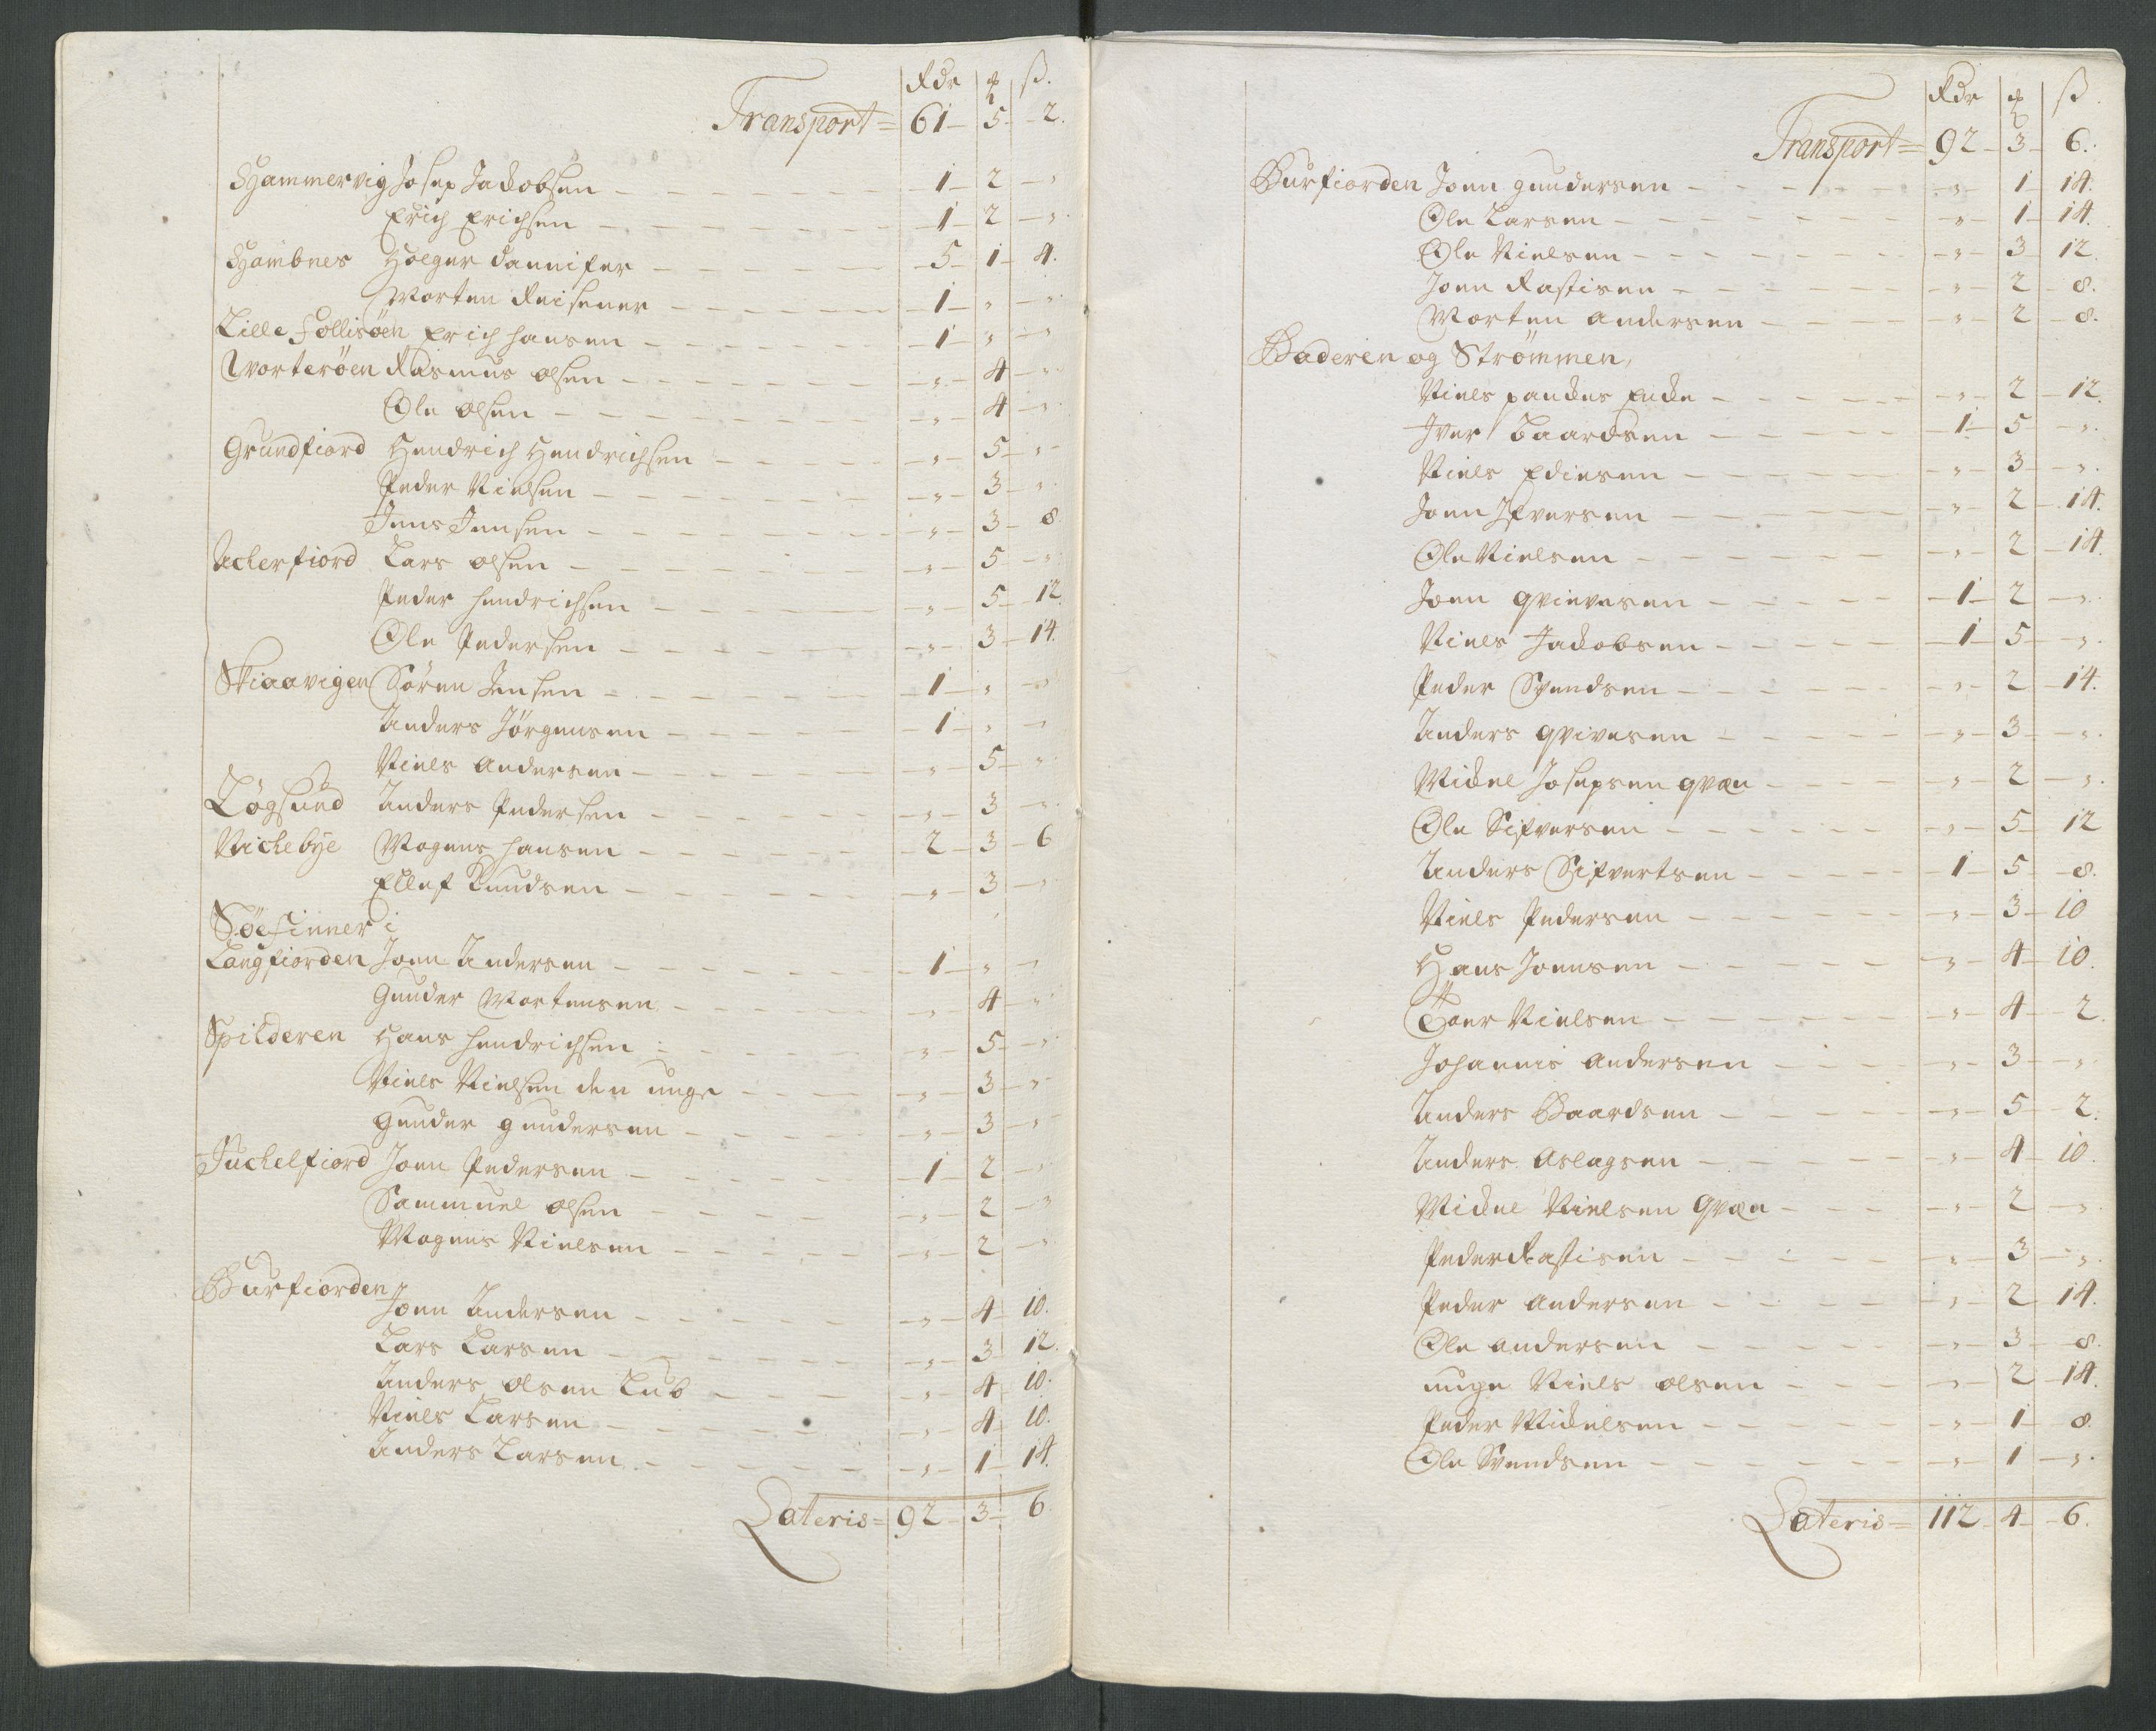 Rdr ꝸ ß.
Transport = 61 - 5 - 2.
Hammervig Josep Jackobsen - 1 - 2 - "
Erich Erichsen - 1 - 2 - "
Hambnes Holger Dannifer - 5 - 1 - 4.
Morten Reisener - 1 - " - "
Lille Follisøen Erich Hansen - 1 - " - "
Worterøen Rasmus Olsen - " - 4 - "
Ole Olsen - " - 4 - "
Grundfiord Hendrich Hendrichsen - " - 5 - "
Peder Nielsen - " - 3 - "
Jens Jensen - " - 3 - 8.
Acherfiord Lars Olsen - " - 5 - "
Peder Hendrichsen - " - 5 - 12.
Ole Pedersen - " - 3 - 14.
Skiaavigen Sören Jensen - 1 - " - "
Anders Jörgensen - 1 - " - "
Niels Andersen - " - 5 - "
Løgsund Anders Pedersen - " - 3 - "
Nichebye Mogens Hansen - 2 - 3 - 6
Ellef Knudsen - " - 3 - "
Søefinner i
Langfiorden Joen Andersen - 1 - " - "
Gunder Mortensen - " - 4 - "
Spilderen Hans Hendrichsen - " - 5 - "
Niels Nielsen den unge - " - 3 - "
Gunder Gundersen - " - 3 - "
Juchelfiord Joen Pedersen - 1 - 2 - "
Sammuel Olsen - " - 2 - "
Mogens Nielsen - " - 2 - "
Burfiorden
Joen Andersen - " - 4 - 10.
Lars Larsen - " - 3 - 12.
Anders Olsen Lub - " - 4 - 10.
Niels Larsen - " - 4 - 10.
Anders Larsen - " - 1 - 14.
Lateris = 92 - 3 - 6
Rdr ꝸ ß.
Transport = 92 - 3 - 6.
Burfiorden Joen Gundersen - " - 1 - 14.
Ole Larsen - " - 1 - 14.
Ole Nielsen - " - 3 - 12.
Joen Rastisen - " - 2 - 8.
Morten Andersen - " - 2 - 8.
Baderen og Strømmen,
Niels Pandes Enke - " - 2 - 12.
Iver Baardsen - 1 - 5 - "
Niels Ediesen - " - 3 - "
Joen Ifversen - " - 2 - 14.
Ole Nielsen - " - 2 - 14.
Joen Qvivesen - 1 - 2 - "
Niels Jackobsen - 1 - 5 - "
Peder Svendsen - " - 2 - 14.
Anders Qvivesen - " - 3 - "
Mickel Josepsen Qvæn - " - 2 - "
Ole Sifversen - " - 5 - 12
Anders Sifvertsen - 1 - 5 - 8.
Niels Pedersen - " - 3 - 10
Hans Joensen - " - 4 - 10.
Thoer Nielsen - " - 4 - 2.
Johannis Andersen - " - 3 - "
Anders Baardsen - " - 5 - 2.
Anders Aslagsen - " - 4 - 10.
Mickel Nielsen Qvæn - " - 2 - "
Peder Rastisen - " - 3 - "
Peder Andersen - " - 2 - 14.
Ole Andersen - " - 3 - 8.
unge Niels Olsen - " - 2 - 14.
Peder Mickelsen - " - 1 - 8.
Ole Svendsen - " - 1 - "
Lateris = 112 - 4 - 6.